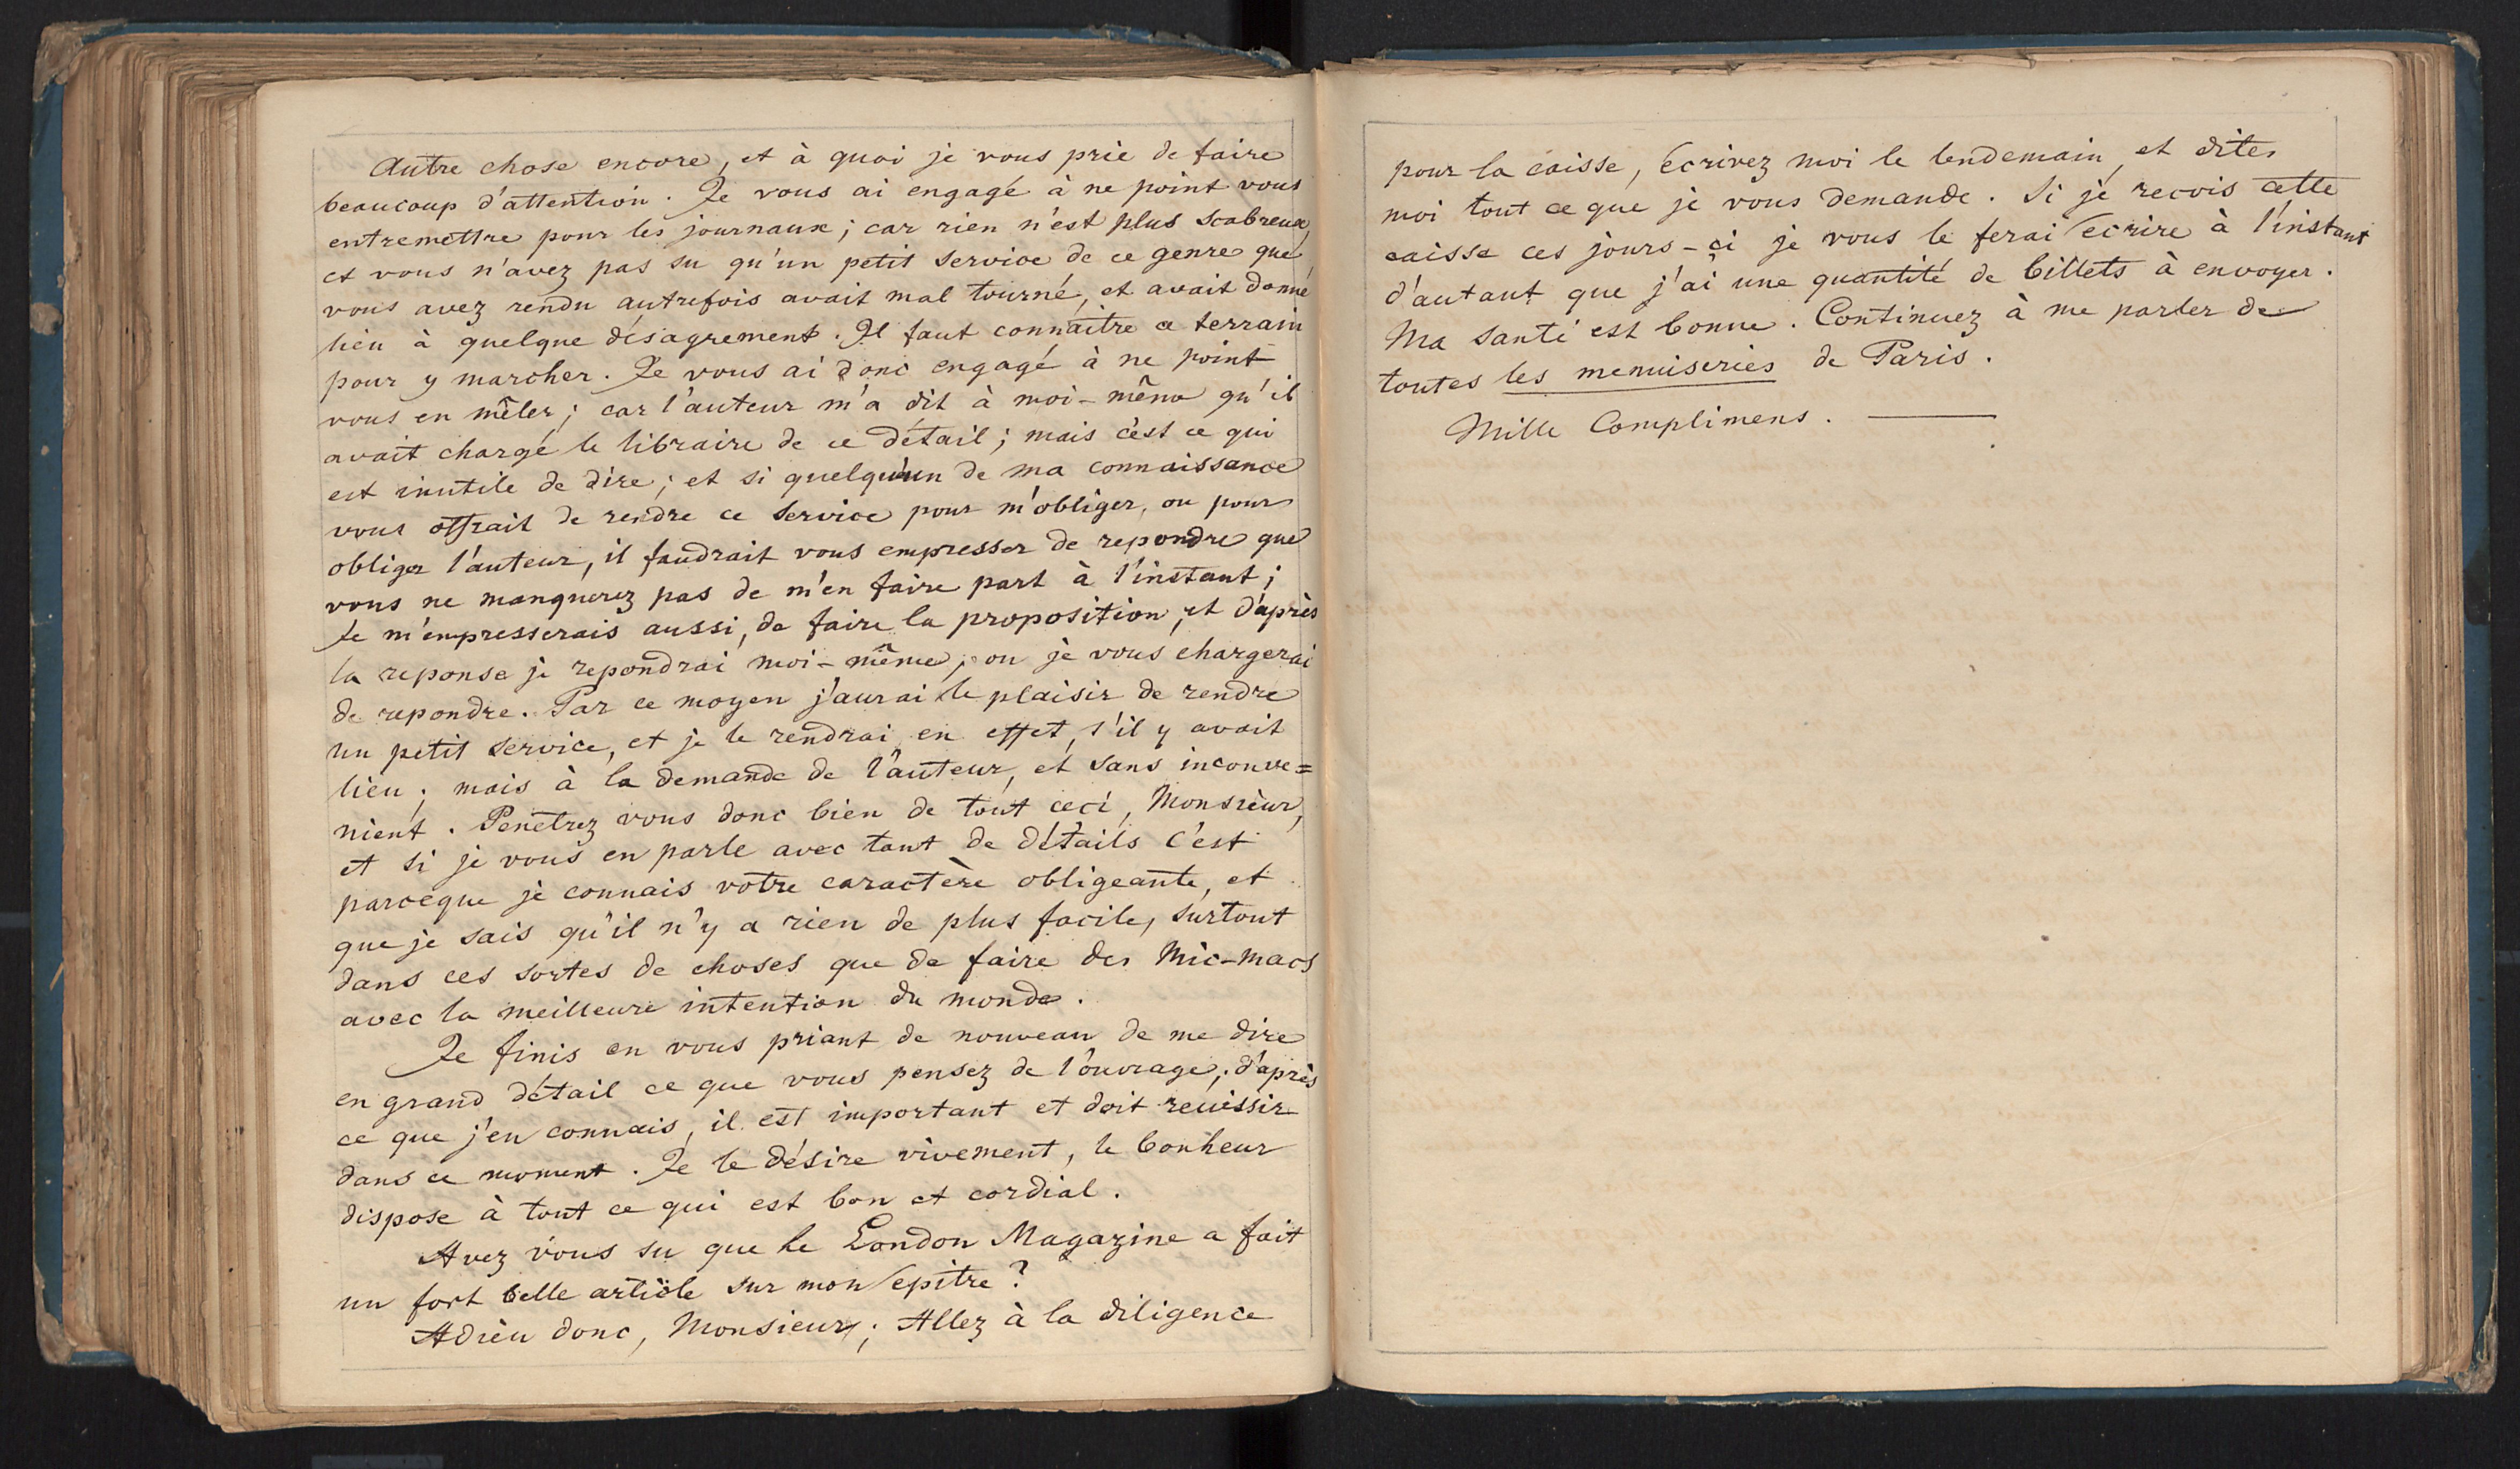 Autre chose encore, et à quoi je vous prie de faire
beaucoup d'attention. Je vous ai engagé à ne point vous
entremettre pour les journaux; car rien n'est plus scabreux,
et vous n'avez pas su qu'un petit service de ce genre que
vous avez rendu autrefois avait mal tourné, et avait donné
lieu à quelque désagrement. Il faut connaître ce terrain
pour y marcher. Je vous ai donc engagé à ne point
vous en mêler; car l'auteur m'a dit à moi-même qu'il
avait chargé le libraire de ce détail; mais c'est ce qui
est inutile de dire; et si quelqu'un de ma connaissance
vous offrait de rendre ce service pour m'obliger, ou pour
obliger l'auteur, il faudrait vous empresser de repondre que
vous ne manquerez pas de m'en faire part à l'instant;
Je m'empresserais aussi, de faire la proposition, et d'après
la reponse je repondrai moi-même, ou je vous chargerai
de repondre. Par ce moyen j'aurai le plaisir de rendre
un petit service, et je le rendrai en effet, s'il y avait
lieu; mais à la demande de l'auteur, et sans inconve=
nient. Penêtrez vous donc bien de tout ceci, Monsieur,
et si je vous en parle avec tant de détails c'est
parceque je connais votre caractère obligeante, et
que je sais qu'il n'y a rien de plus facile, surtout
dans ces sortes de choses que de faire des Mic-macs
avec la meilleure intention du monde.
Je finis en vous priant de nouveau de me dire
en grand détail ce que vous pensez de l'ouvrage; d'après
ce que j'en connais, il est important et doit reuissir
dans ce moment. Je le désire vivement, le bonheur
dispose à tout ce qui est bon et cordial.
Avez vous su que le London Magazine a fait
un fort belle article sur mon epitre?
Adieu donc, Monsieur; Allez à la diligence
pour la caisse, écrivez moi le lendemain, et dites
moi tout ce que je vous demande. Si je reçois cette
caisse ces jours-ci je vous le ferai écrire à l'instant
d'autant que j'ai une quantité de billets à envoyer.
Ma santé est bonne. Continuez à me parler de
toutes les menuiseries de Paris.
Mille Complimens. ———